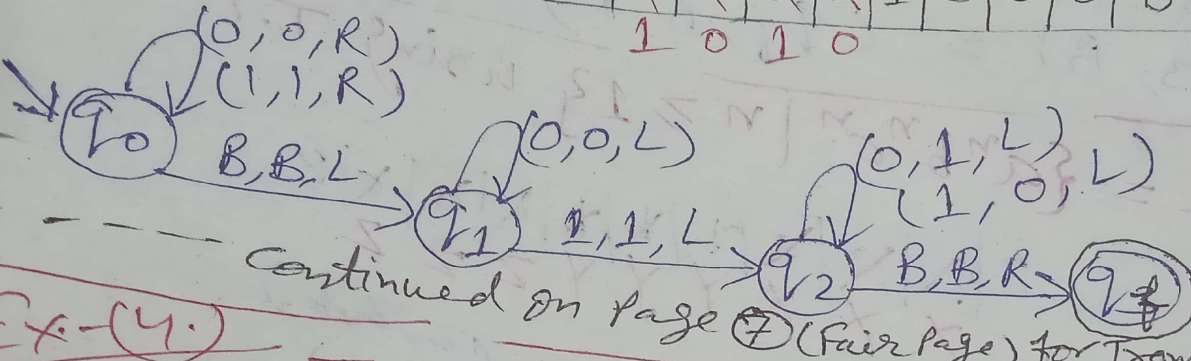 1 0 1 0
(0,0,R)
(1,1,R)
q0
B,B,L
(0,0,L)
q1
1,1,L
(0,1,L)
(1,0,L)
q2
B,B,R
qf
Continued on Page 7 (Fair Page) for
Ex.-(4.)